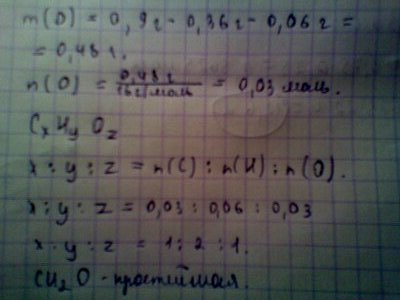 m(O) = 0,9г - 0,36г - 0,06г =
= 0,48г.
n(O) = 0,48г / 16г/моль = 0,03 моль.
CxHyOz
x : y : z = n(C) : n(H) : n(O).
x : y : z = 0,03 : 0,06 : 0,03
x : y : z = 1 : 2 : 1.
CH2O - простейшая.